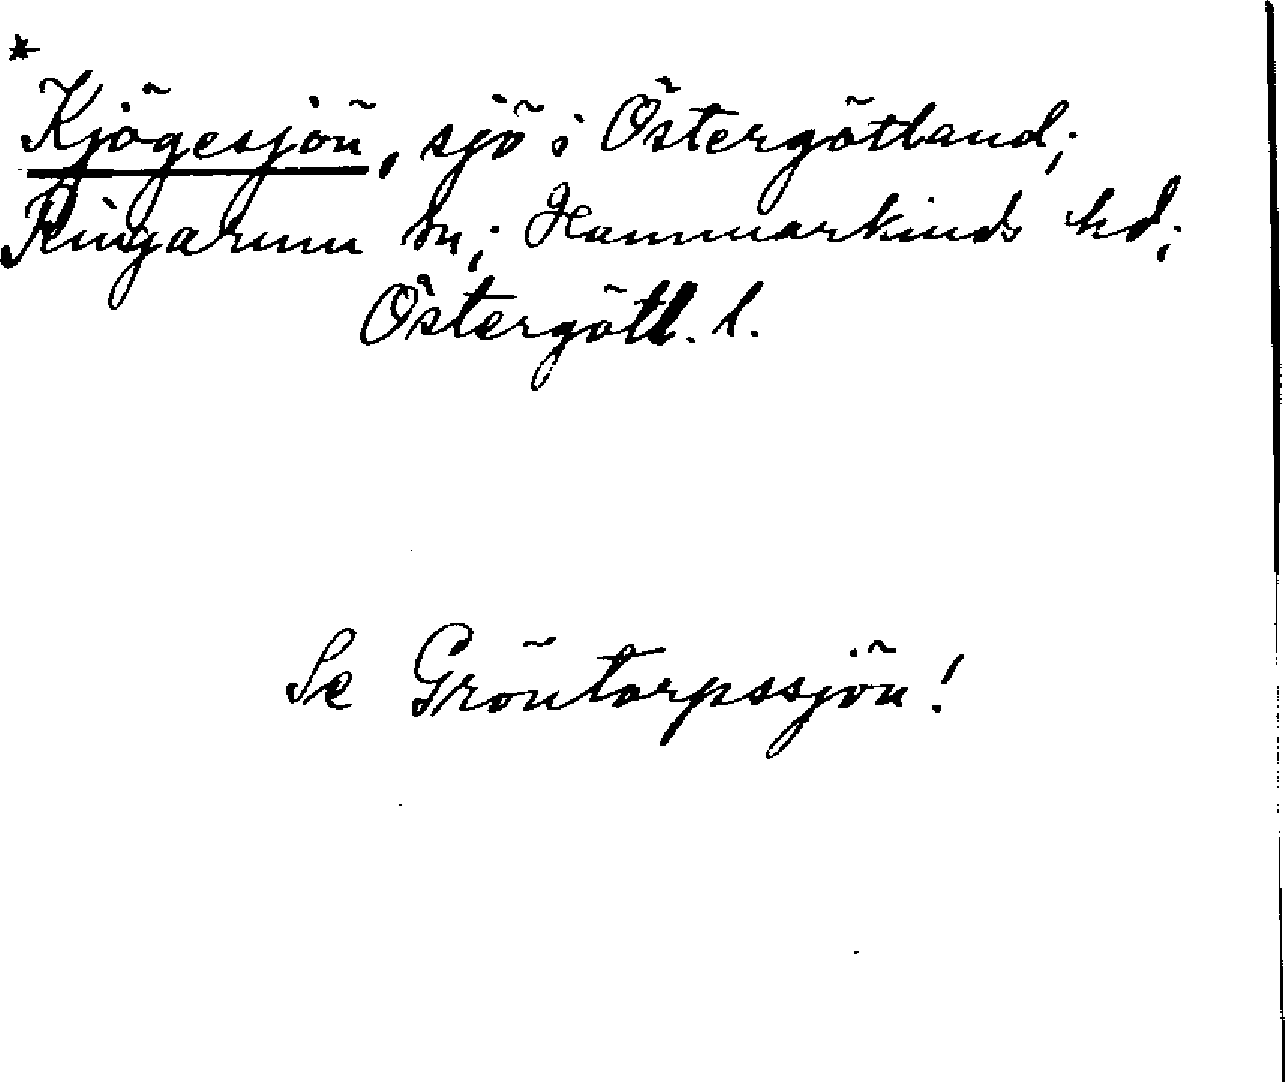 *
Kjögesjön, sjö i Östergötland;
Ringarum sn; Hammarkinds hd;
Östergötl. l.
Se Gröntorpssjön!